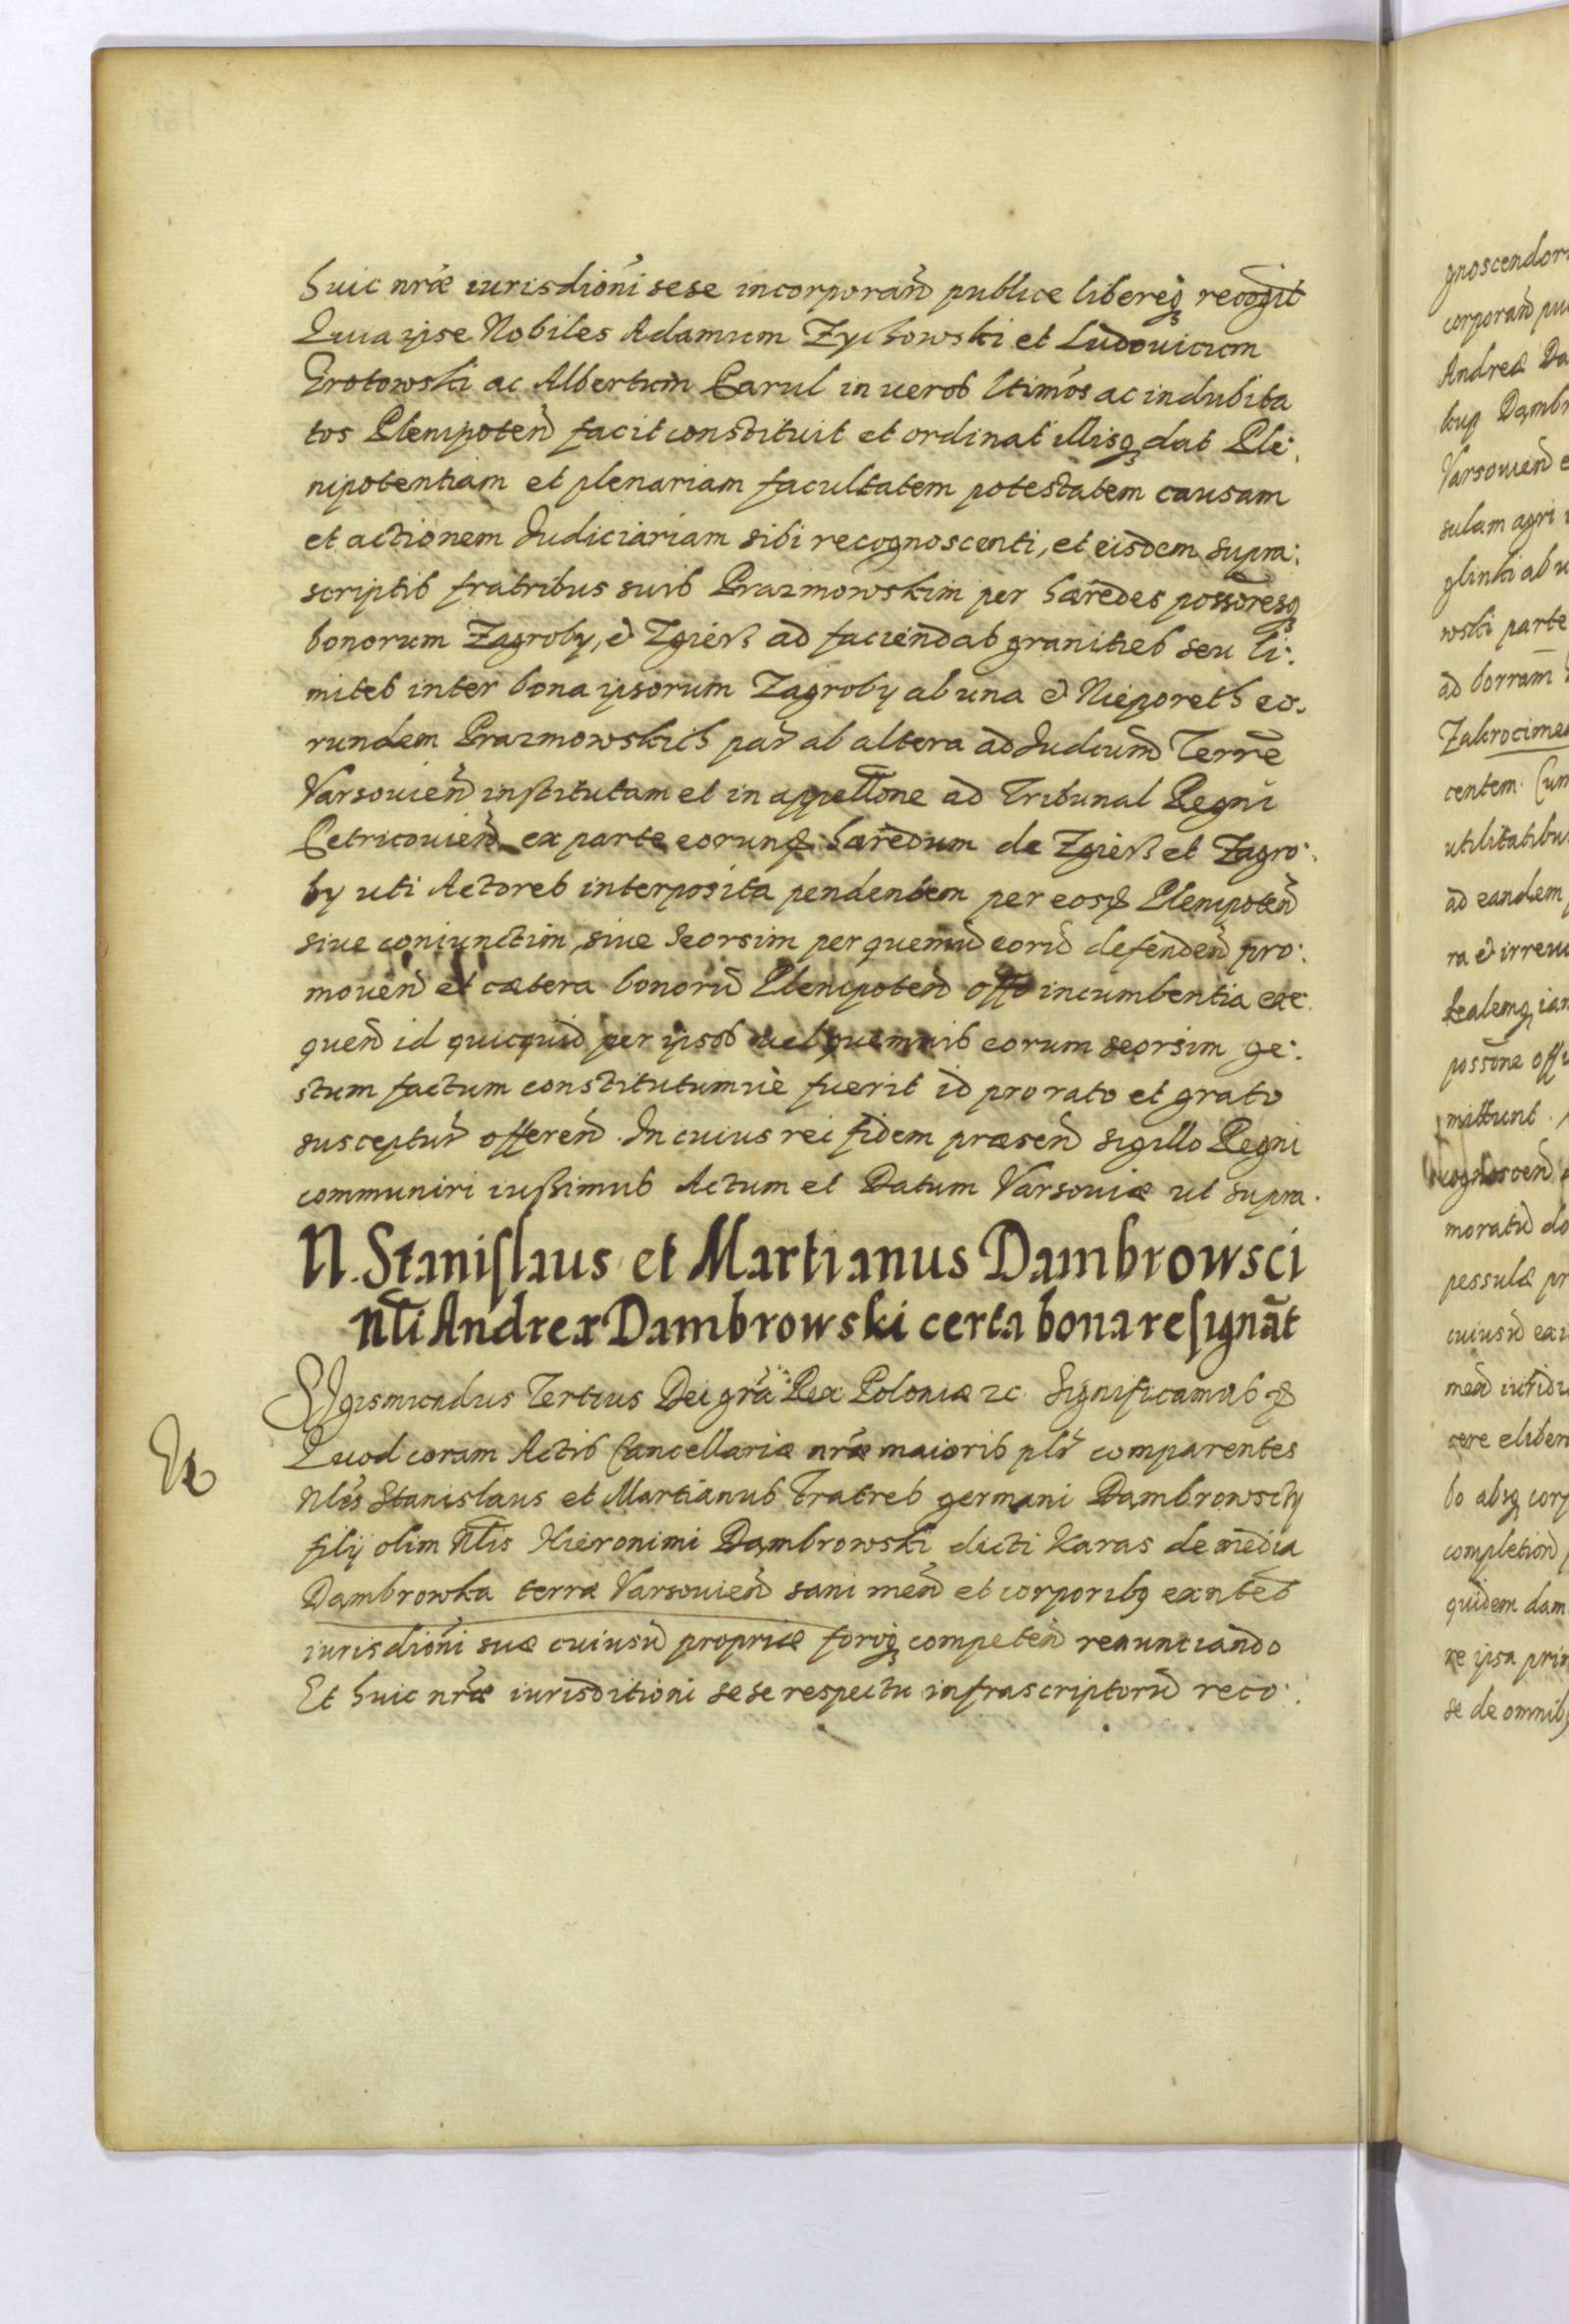 huic nrae iurisdioni sese incorporan publice libereq recogit
Quia ipse Nobiles Adamum Zychowski et Ludouicum
Grotowski ac Albertum Carul in ueros ltimos ac indubita
tos Plenipoten facit constituit et ordinat illisq dat Ple:
nipotentiam et plenariam facultatem potestatem causam
et actionem Judiciariam sibi recognoscenti, et eisdem supra:
scriptis fratribus suis Prazmowskim per haeredes possoresq
bonorum Zagroby, et Zgierz ad faciendas granities seu li:
mites inter bona ipsorum Zagroby ab una et Nieporeth eo:
rundem Prazmowskich par ab altera ad Judicium Terrae
Varsouien institutam et in appellone ad Tribunal Regni
Petricouien ex parte eorund haeredum de Zgierz et Zagro:
by uti Actores interposita pendentem per eosd Plenipoten
siue coniunctim, siue seorsim per quemuis eorum defenden pro:
mouen et caetera bonorum Plenipoten offo incumbentia exe
quen id quicquid per ipsos uel quemuis eorum seorsim ge:
stum factum constitutumue fuerit id pro rato et grato
susceptur offeren. In cuius rei fidem praesen sigillo Regni
communiri iussimus Actum et Datum Varsouiae ut supra.
N. Stanislaus et Martianus Dambrowsci
Nli Andreae Dambrowski certa bona resignat
Sigismundus Tertius Dei gra Rex Poloniae etc. Significamus etc
Quod coram Actis Cancellariae nrae maioris plr comparentes
Nles Stanislaus et Martianus Fratres germani Dambrowscy
filij olim Nlis Hieronimi Dambrowski dicti Karas de media
Dambrowka terrae Varsouien sani men et corporibq exntes
iurisdioni suae cuiusuis propriae foroq competen renunciando
Et huic nrae iurisditioni sese respectu infrascriptorum reco:
gnoscendor
corporan pu
Andreae Da
Dambr
Varsouien e
sulam agri
glinki ab u
wski parte
ad borram
Zakrocimen
centem. Cum
utilitatibus
ad eandem
ra et irreuo
Realemq ian
possone offi
mittunt.
cognoscen
moratum do
pessulae pr
cuiusuis exi
men iuridi
cere et liber
bo absq corp
completion
quidem dam
re ipsa prin
se de omnibq